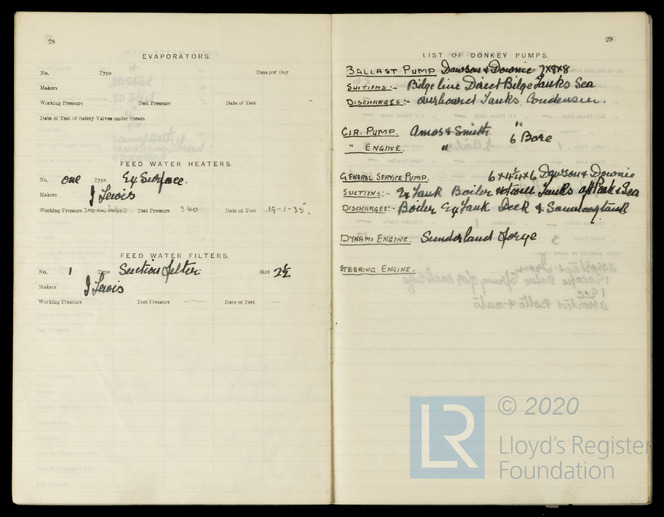 28
EVAPORATORS.
No. Type Tons per Day
Makers
Working Pressure Test Pressure Date of Test
Date of Test of Safety Valves under Steam
FEED WATER HEATERS.
No. one Type Ex Surface.
Makers J Lewis
Working Pressure Test Pressure 360 Date of Test 19-1-35
FEED WATER FILTERS.
No. 1 Type Suction filter Size 2½
Makers J Lewis
Working Pressure Test Pressure Date of Test
29
LIST OF DONKEY PUMPS.
BALLAST PUMP Dawson & Downie 7x8x8
SUCTIONS:- Bilge line Direct Bilge Tanks Sea
DISCHARGES:- overboard Tanks Condenser.
CIR. PUMP. Amos & Smith "
" ENGINE. " 6 Bore
GENERAL SERVICE PUMP. 6x4½x6 Dawson & Downie
SUCTIONS:- Ex Tank Boiler Hotwell Tanks aft Peak & Sea
DISCHARGES:- Boiler Ex Tank Deck &
DYNAMO ENGINE. Sunderland forge
STEERING ENGINE.
LR © 2020
Lloyd's Register
Foundation